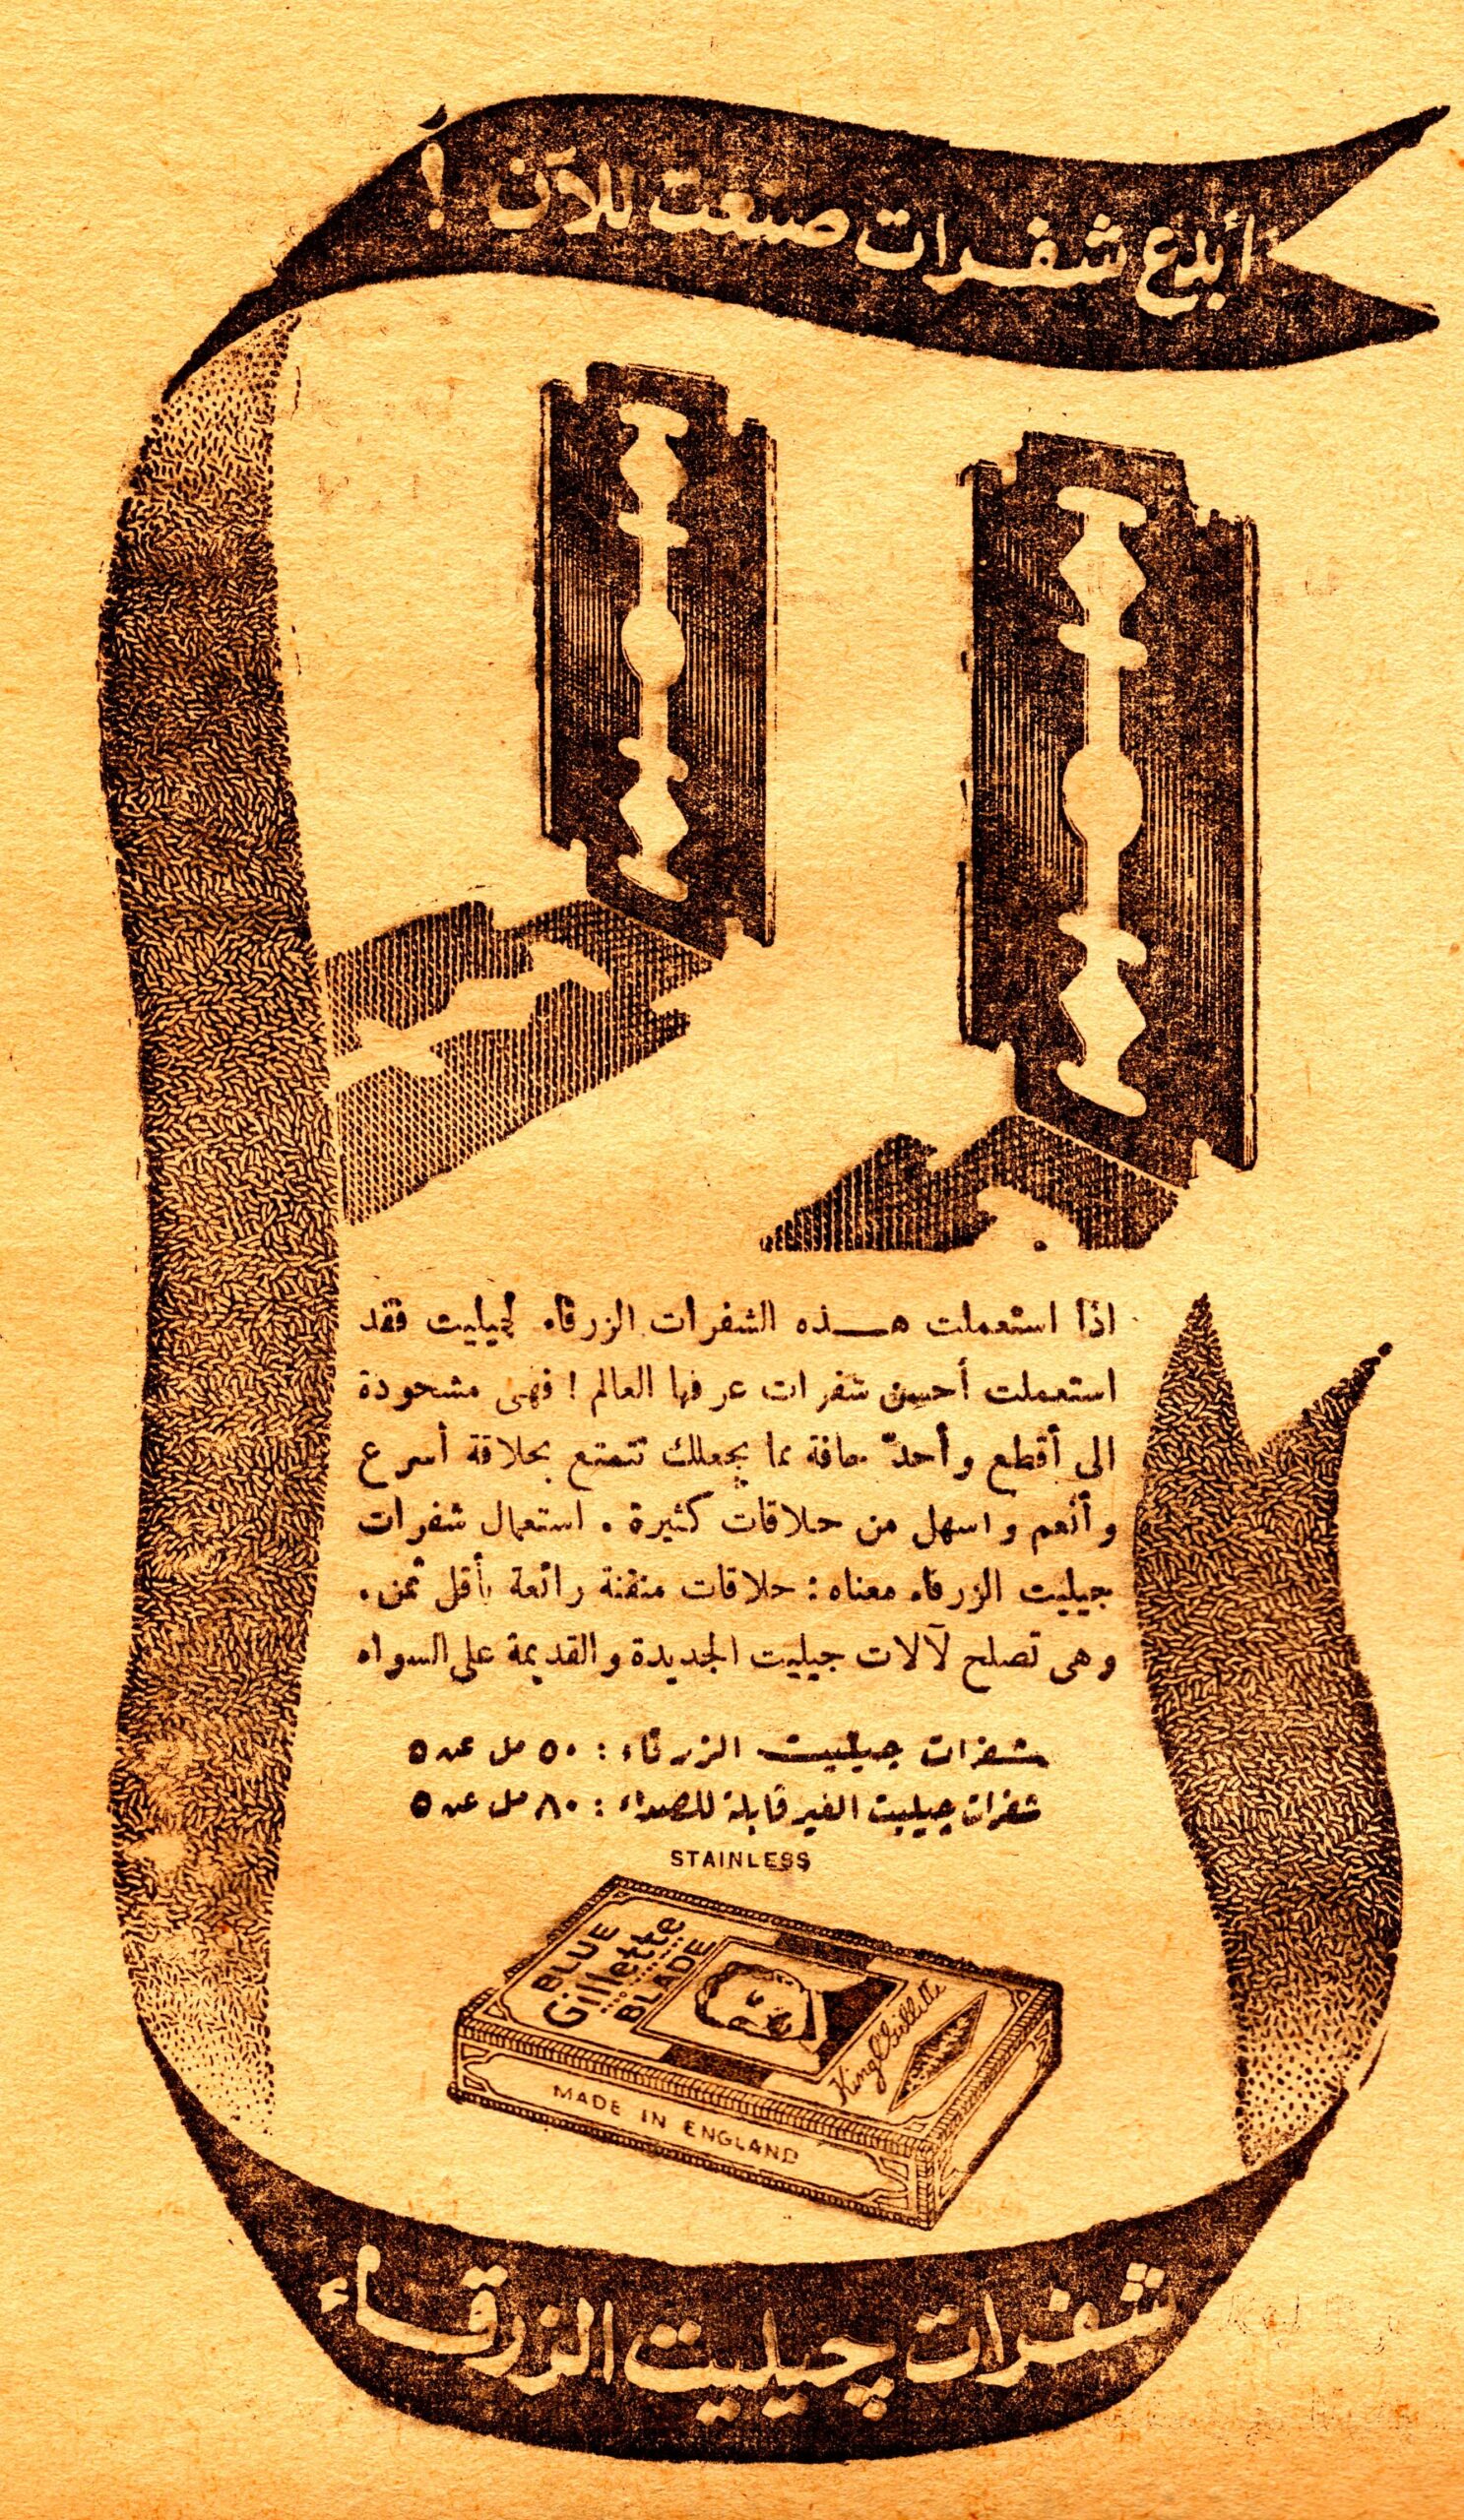 أبدع شفرات صنعت للآن !
اذا استعملت هذه الشفرات الزرقاء لجيليت فقد
استعملت أحسن شفرات عرفها العالم ! فهى مشحوذة
الى أقطع وأحدّ حافة مما يجعلك تتمتع بحلاقة أسرع
وأنعم واسهل من حلاقات كثيرة . استعمال شفرات
جيليت الزرقاء معناه : حلاقات متقنة رائعة بأقل ثمن .
وهى تصلح لآلات جيليت الجديدة والقديمة على السواء
شفرات چيلييت الزرقاء : ٥٠ مل عن ٥
شفرات چيلييت الغير قابلة للصداء : ٨٠ مل عن ٥
STAINLESS
BLUE
Gillette
BLADE
King C Gillette
MADE IN ENGLAND
شفرات چيليت الزرقاء